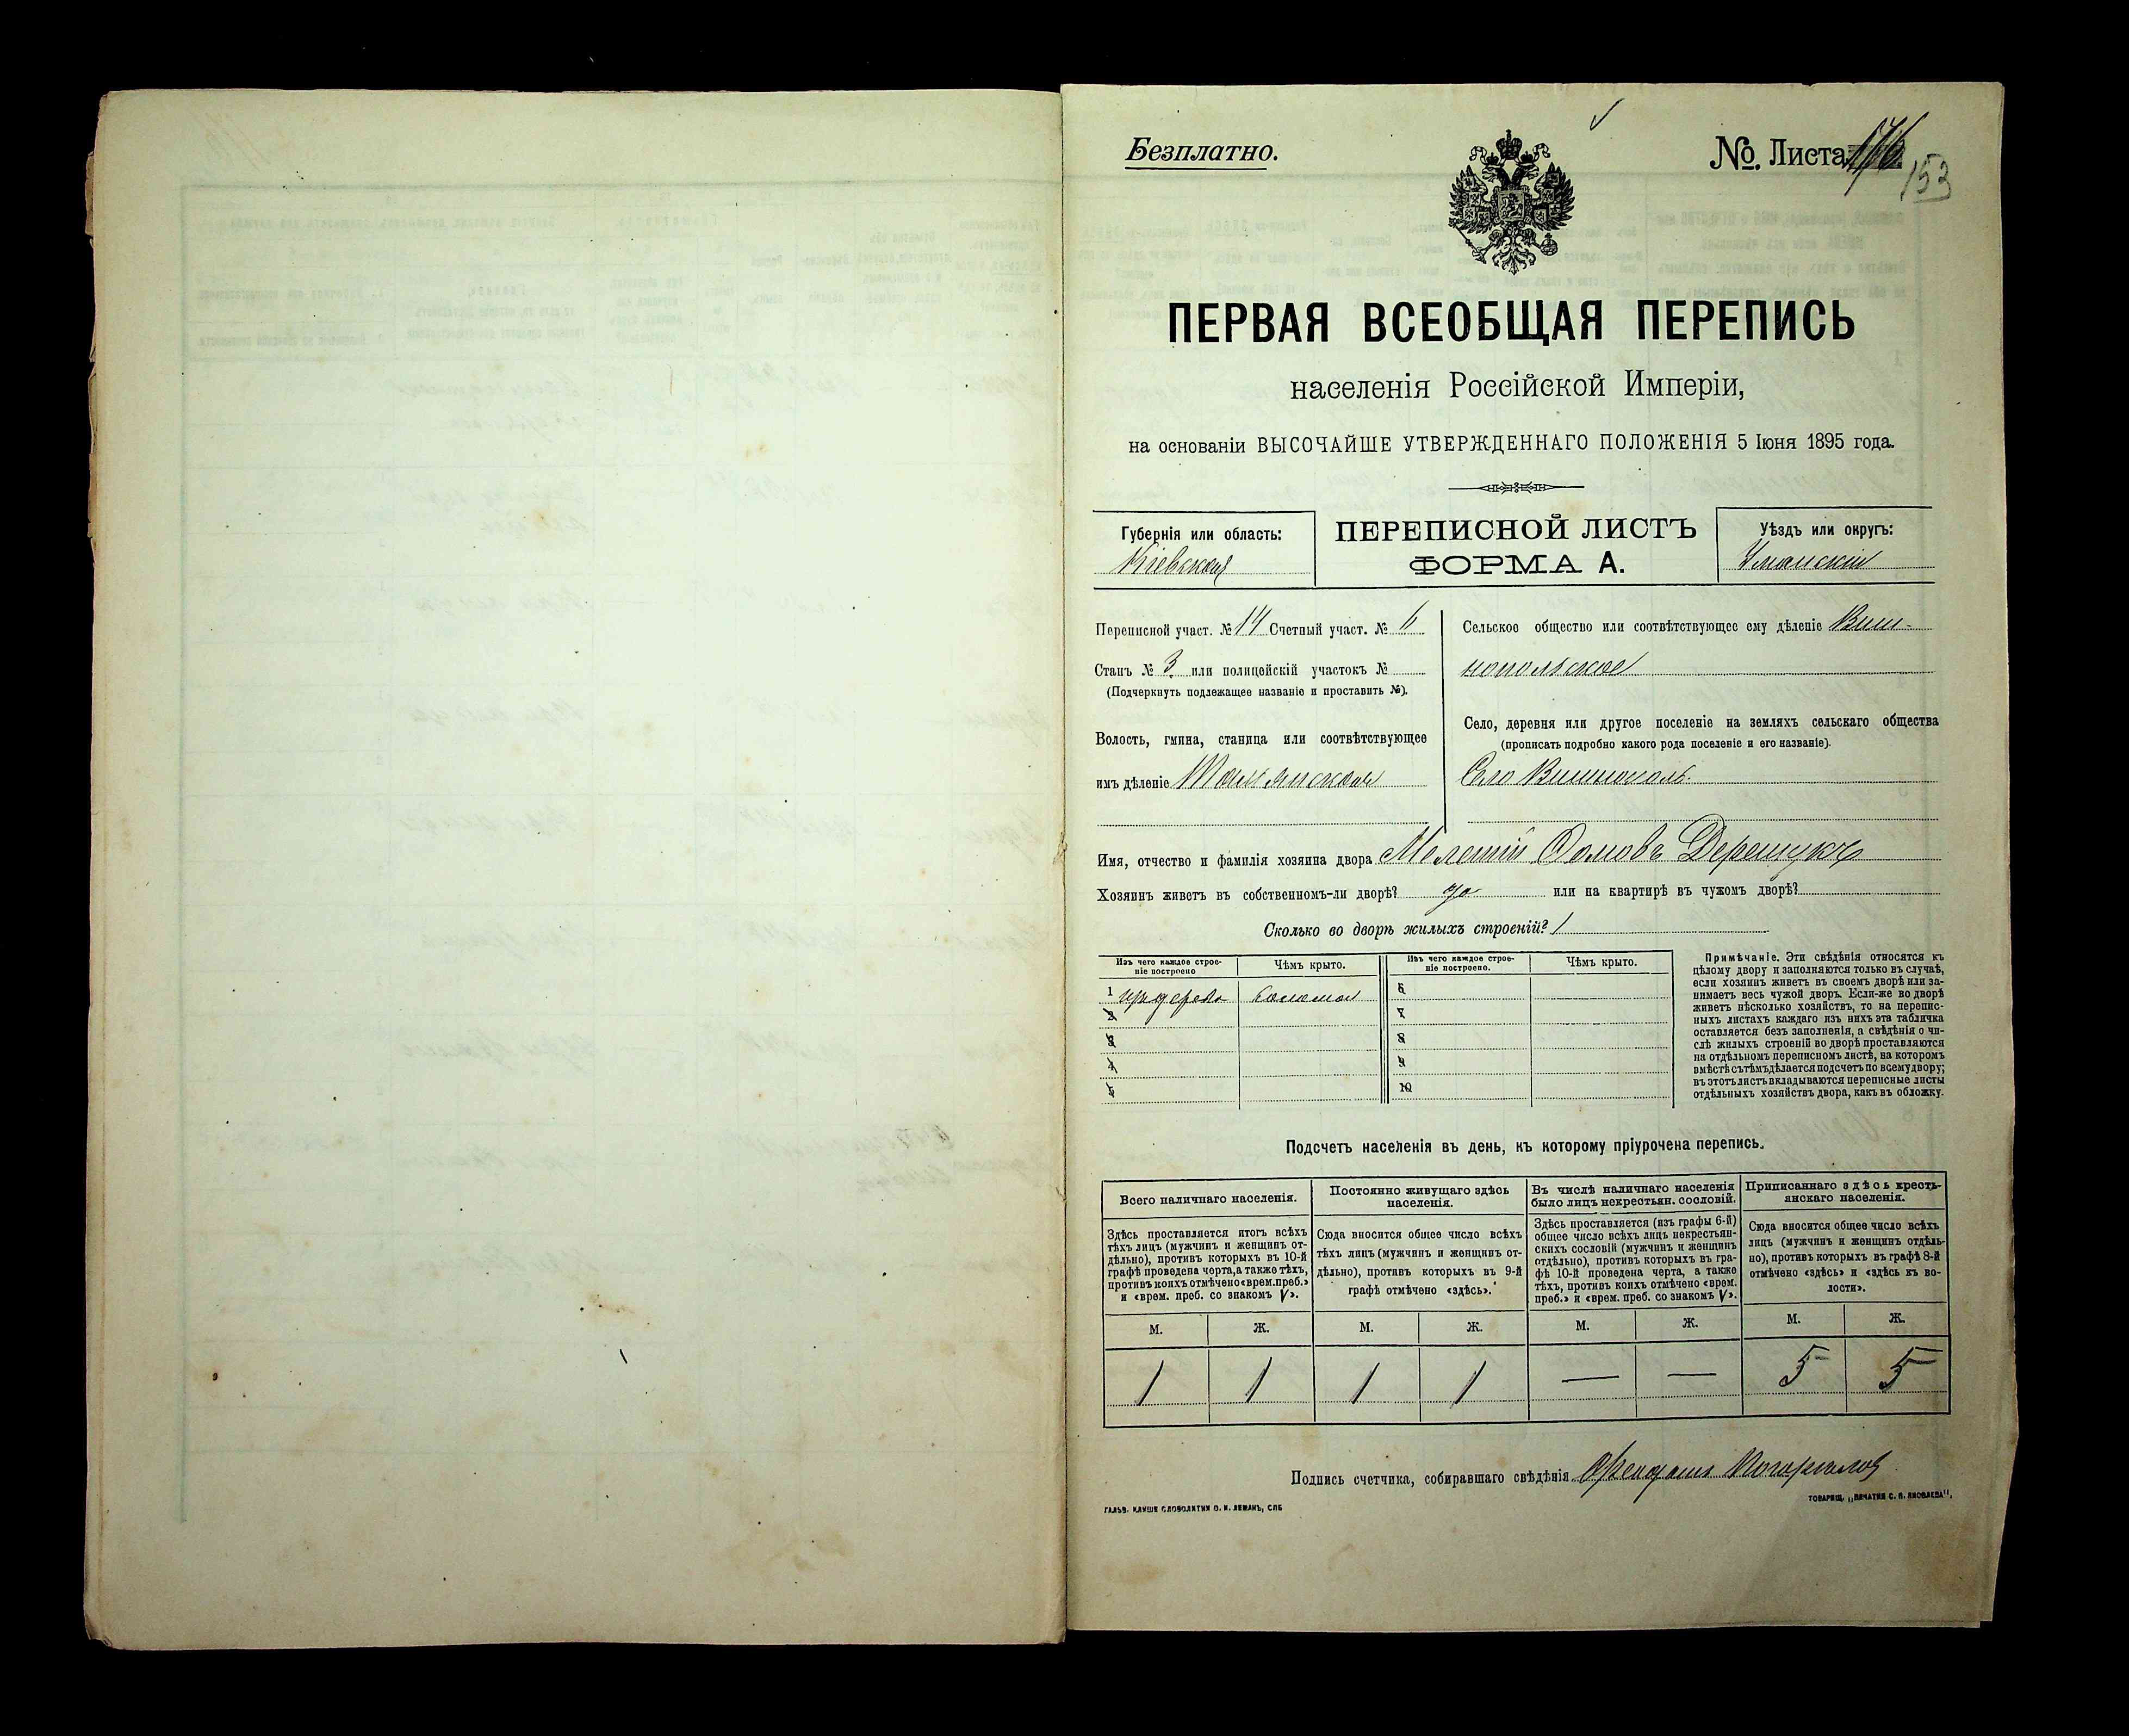 Безплатно.
№. Листа 153
ПЕРВАЯ ВСЕОБЩАЯ ПЕРЕПИСЬ
населенія Россійской Имперіи,
на основаніи ВЫСОЧАЙШЕ УТВЕРЖДЕННАГО ПОЛОЖЕНІЯ 5 Іюня 1895 года.
Губернія или область:
Кіевская
ПЕРЕПИСНОЙ ЛИСТЪ
ФОРМА А.
Уѣздъ или округъ:
Уманскій
Переписной участ. № 14 Счетный участ. № 6
Станъ № 3. или полицейскій участокъ №
(Подчеркнуть подлежащее названіе и проставить №).
Волость, гмина, станица или соотвѣтствующее
имъ дѣленіе Тальянская
Сельское общество или соотвѣтствующее ему дѣленіе Виш-
нопольское
Село, деревня или другое поселеніе на земляхъ сельскаго общества
(прописать подробно какого рода поселеніе и его названіе).
Село Вишнополь
Имя, отчество и фамилія хозяина двора Мелетій Фомовъ Дерещукъ
Хозяинъ живетъ въ собственномъ-ли дворѣ? да или на квартирѣ въ чужомъ дворѣ?
Сколько во дворѣ жилыхъ строеній? 1
Изъ чего каждое строе-
ніе построено
Чѣмъ крыто.
Изъ чего каждое строе-
ніе построено.
Чѣмъ крыто.
1 изъ дерева соломой 6
2 7
3 8
4 9
5 10
Примѣчаніе. Эти свѣдѣнія относятся къ
цѣлому двору и заполняются только въ случаѣ,
если хозяинъ живетъ въ своемъ дворѣ или за-
нимаетъ весь чужой дворъ. Если-же во дворѣ
живетъ нѣсколько хозяйствъ, то на перепис-
ныхъ листахъ каждаго изъ нихъ эта табличка
оставляется безъ заполненія, а свѣдѣнія о чи-
слѣ жилыхъ строеній во дворѣ проставляются
на отдѣльномъ переписномъ листѣ, на которомъ
вмѣстѣ съ тѣмъ дѣлается подсчетъ по всему двору;
въ этотъ листъ вкладываются переписные листы
отдѣльныхъ хозяйствъ двора, какъ въ обложку.
Подсчетъ населенія въ день, къ которому пріурочена перепись.
Всего наличнаго населенія.
Здѣсь проставляется итогъ всѣхъ
тѣхъ лицъ (мужчинъ и женщинъ от-
дѣльно), противъ которыхъ въ 10-й
графѣ проведена черта, а также тѣхъ,
противъ коихъ отмѣчено «врем. преб.»
и «врем. преб. со знакомъ V».
Постоянно живущаго здѣсь
населенія.
Сюда вносится общее число всѣхъ
тѣхъ лицъ (мужчинъ и женщинъ от-
дѣльно), противъ которыхъ въ 9-й
графѣ отмѣчено «здѣсь».
Въ числѣ наличнаго населенія
было лицъ некрестьян. сословій.
Здѣсь проставляется (изъ графы 6-й)
общее число всѣхъ лицъ некрестьян-
скихъ сословій (мужчинъ и женщинъ
отдѣльно), противъ которыхъ въ гра-
фѣ 10-й проведена черта, а также
тѣхъ, противъ коихъ отмѣчено «врем.
преб.» и «врем. преб. со знакомъ V».
Приписаннаго здѣсь кресть-
янскаго населенія.
Сюда вносится общее число всѣхъ
лицъ (мужчинъ и женщинъ отдѣль-
но), противъ которыхъ въ графѣ 8-й
отмѣчено «здѣсь» и «здѣсь къ во-
лости».
М. Ж. М. Ж. М. Ж. М. Ж.
1 1 1 1 — — 5 5
Подпись счетчика, собиравшаго свѣдѣнія
ГАЛЬВ. КЛИШЕ СЛОВОЛИТНИ О. И. ЛЕМАНЪ, СПБ
ТОВАРИЩ. „ПЕЧАТНЯ С. П. ЯКОВЛЕВА“.